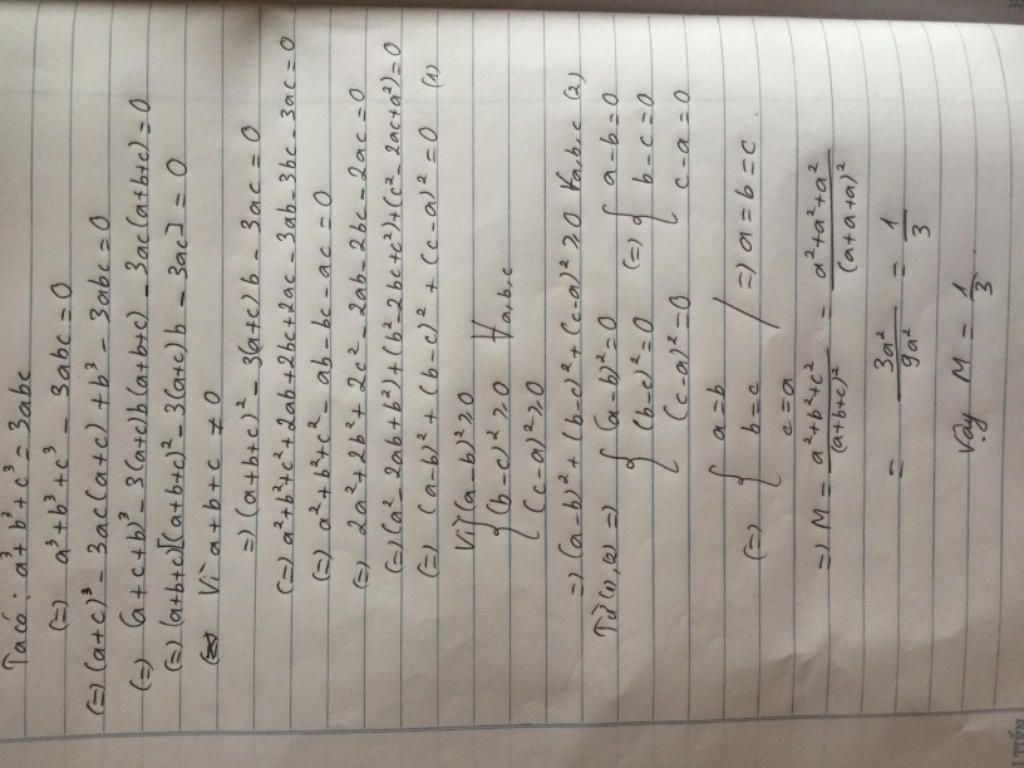 Ta có : a³ + b³ + c³ = 3abc
(=) a³ + b³ + c³ - 3abc = 0
(=) (a+c)³ - 3ac(a+c) + b³ - 3abc = 0
(=) (a+c+b)³ - 3(a+c)b(a+b+c) - 3ac(a+b+c) = 0
(=) (a+b+c)[(a+b+c)² - 3(a+c)b - 3ac] = 0
Vì a+b+c ≠ 0
=) (a+b+c)² - 3(a+c)b - 3ac = 0
(=) a²+b²+c²+2ab+2bc+2ac - 3ab - 3bc - 3ac = 0
(=) a²+b²+c² - ab - bc - ac = 0
(=) 2a²+2b²+2c² - 2ab - 2bc - 2ac = 0
(=) (a² - 2ab + b²) + (b² - 2bc + c²) + (c² - 2ac + a²) = 0
(=) (a-b)² + (b-c)² + (c-a)² = 0 (1)
Vì { (a-b)² ≥ 0
(b-c)² ≥ 0 ∀ a,b,c
(c-a)² ≥ 0
=) (a-b)² + (b-c)² + (c-a)² ≥ 0 ∀a,b,c (2)
Từ (1), (2) =) { (a-b)² = 0 (=) { a-b = 0
(b-c)² = 0 b-c = 0
(c-a)² = 0 c-a = 0
(=) { a = b
b = c / =) a = b = c
c = a
=) M = a²+b²+c² / (a+b+c)² = a²+a²+a² / (a+a+a)²
= 3a² / 9a² = 1 / 3
Vậy M = 1/3 .
I TIẾN